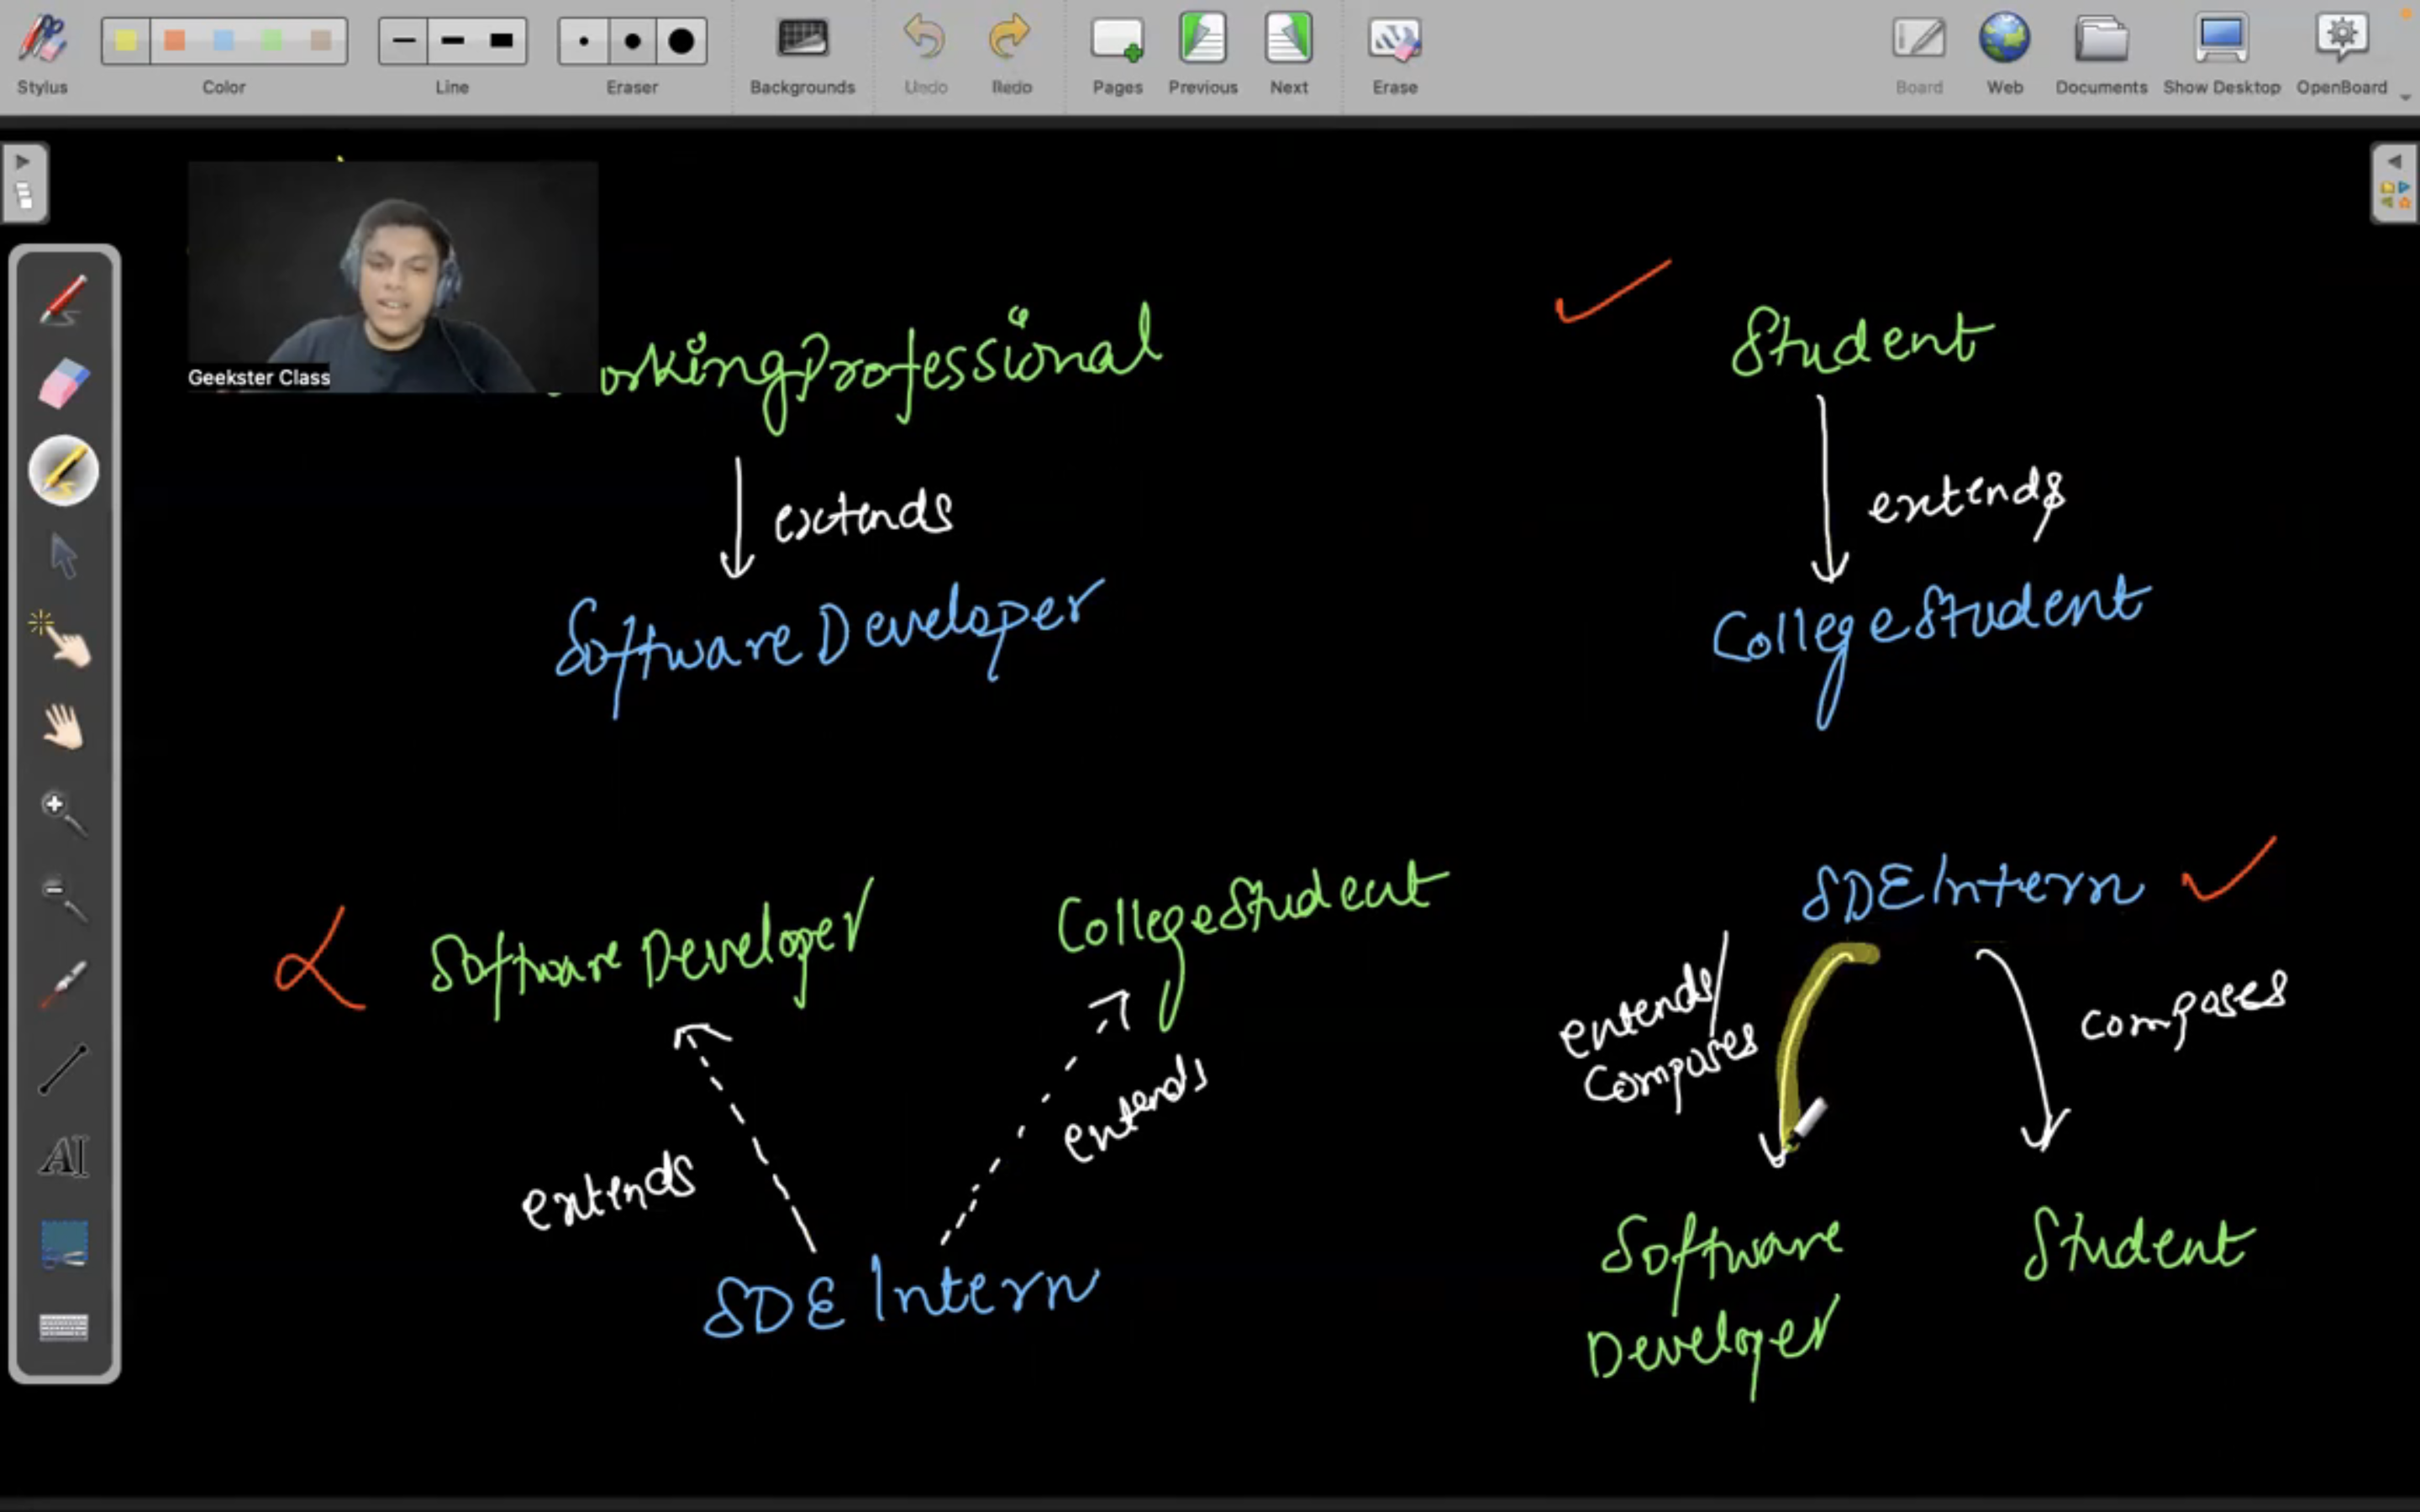 Stylus
Color
Line
Eraser
Backgrounds
Undo
Redo
Pages
Previous
Next
Erase
Board
Web
Documents
Show Desktop
OpenBoard
Geekster Class
orkingProfessional
extends
SoftwareDeveloper
Student
extends
CollegeStudent
Software Developer
CollegeStudent
extends
extends
SDE Intern
SDEIntern
extends/
Composes
composes
Software
Developer
Student
AI